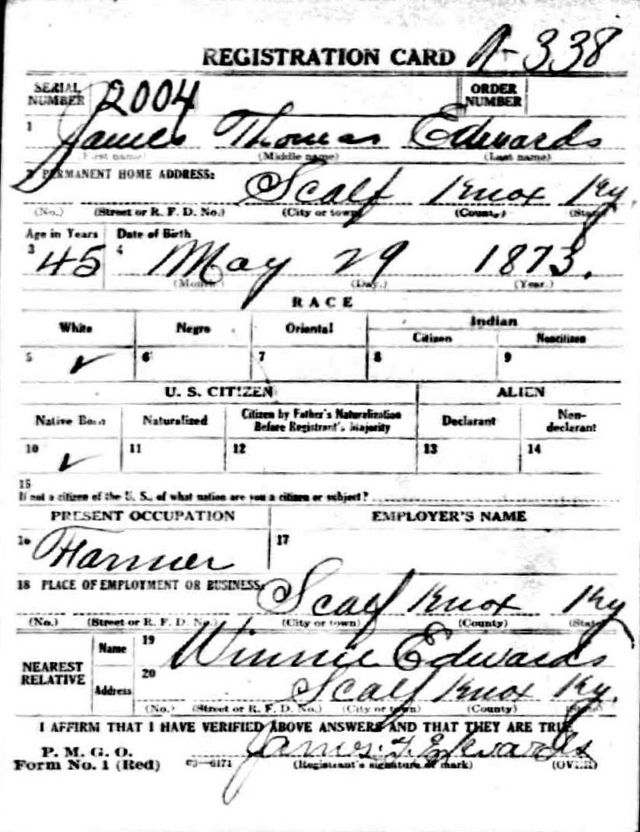 REGISTRATION CARD A-338
SERIAL NUMBER 2004 ORDER NUMBER
1 James Thomas Edwards
(First name) (Middle name) (Last name)
2 PERMANENT HOME ADDRESS: Scalf Knox Ky.
(No.) (Street or R. F. D. No.) (City or town) (County) (State)
Age in Years Date of Birth
3 45 4 May 29 1873.
(Month.) (Day.) (Year.)
RACE
White Negro Oriental Indian
Citizen Noncitizen
5 ✓ 6 7 8 9
U. S. CITIZEN ALIEN
Native Born Naturalized Citizen by Father's Naturalization Before Registrant's Majority Declarant Non-declarant
10 ✓ 11 12 13 14
15
If not a citizen of the U. S., of what nation are you a citizen or subject?
PRESENT OCCUPATION EMPLOYER'S NAME
16 Farmer 17
18 PLACE OF EMPLOYMENT OR BUSINESS: Scalf Knox Ky
(No.) (Street or R. F. D. No.) (City or town) (County) (State)
NEAREST RELATIVE Name 19 Winnie Edwards
Address 20 Scalf Knox Ky.
(No.) (Street or R. F. D. No.) (City or town) (County) (State)
I AFFIRM THAT I HAVE VERIFIED ABOVE ANSWERS AND THAT THEY ARE TRUE
P. M. G. O. James T. Edwards
Form No. 1 (Red) 03—6171 (Registrant's signature or mark) (OVER)